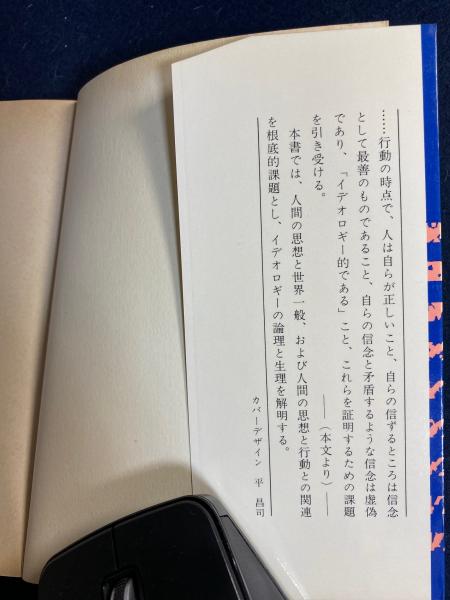 ……行動の時点で、人は自らが正しいこと、自らの信ずるところは信念
として最善のものであること、自らの信念と矛盾するような信念は虚偽
であり、「イデオロギー的である」こと、これらを証明するための課題
を引き受ける。
――（本文より）――
本書では、人間の思想と世界一般、および人間の思想と行動との関連
を根底的課題とし、イデオロギーの論理と生理を解明する。
カバーデザイン 平 昌司